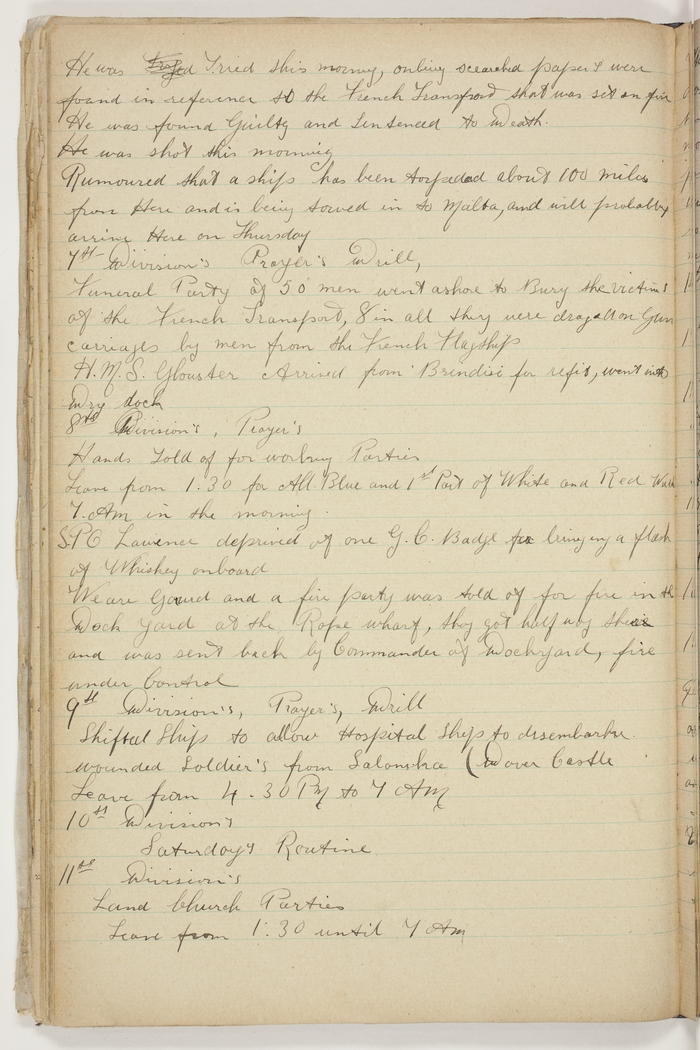 He was Tried this morning, on being searched papers were
found in reference to the French Transport that was set on fire
He was found Guilty and Sentenced to Death.
He was shot this morning
Rumoured that a ship has been torpedod about 100 miles
from Here and is being towed in to Malta, and will probably
arrive Here on Thursday
7th Division's Prayer's Drill,
Funeral Party of 50 men went ashore to Bury the victims
of the French Transport, 8 in all they were draged on Gun
carriages by men from the French Flagship
H.M.S. Glouster Arrived from Brindisi for refit, went into
Dry dock
8th Division's, Prayer's
Hands Told of for working Parties
Leave from 1.30 for All Blue and 1st Part of White and Red Watch
7. AM in the morning.
S.P.O Lawence deprived of one G.C. Badge for bringing a flask
of Whiskey onboard
We are Gaurd and a fire party was told of for fire in the
Dock Yard at the Rope wharf, they got half way there
and was sent back by Commander of Dockyard, fire
under Control
9th Division's, Prayer's, Drill
Shifted Ship to allow Hospital Ship to disembarke
wounded Soldier's from Salonika (Dover Castle
Leave from 4-30 PM to 7 AM
10th Divisions
Saturday's Routine
11th Division's
Land Church Parties
Leave from 1.30 until 7 AM